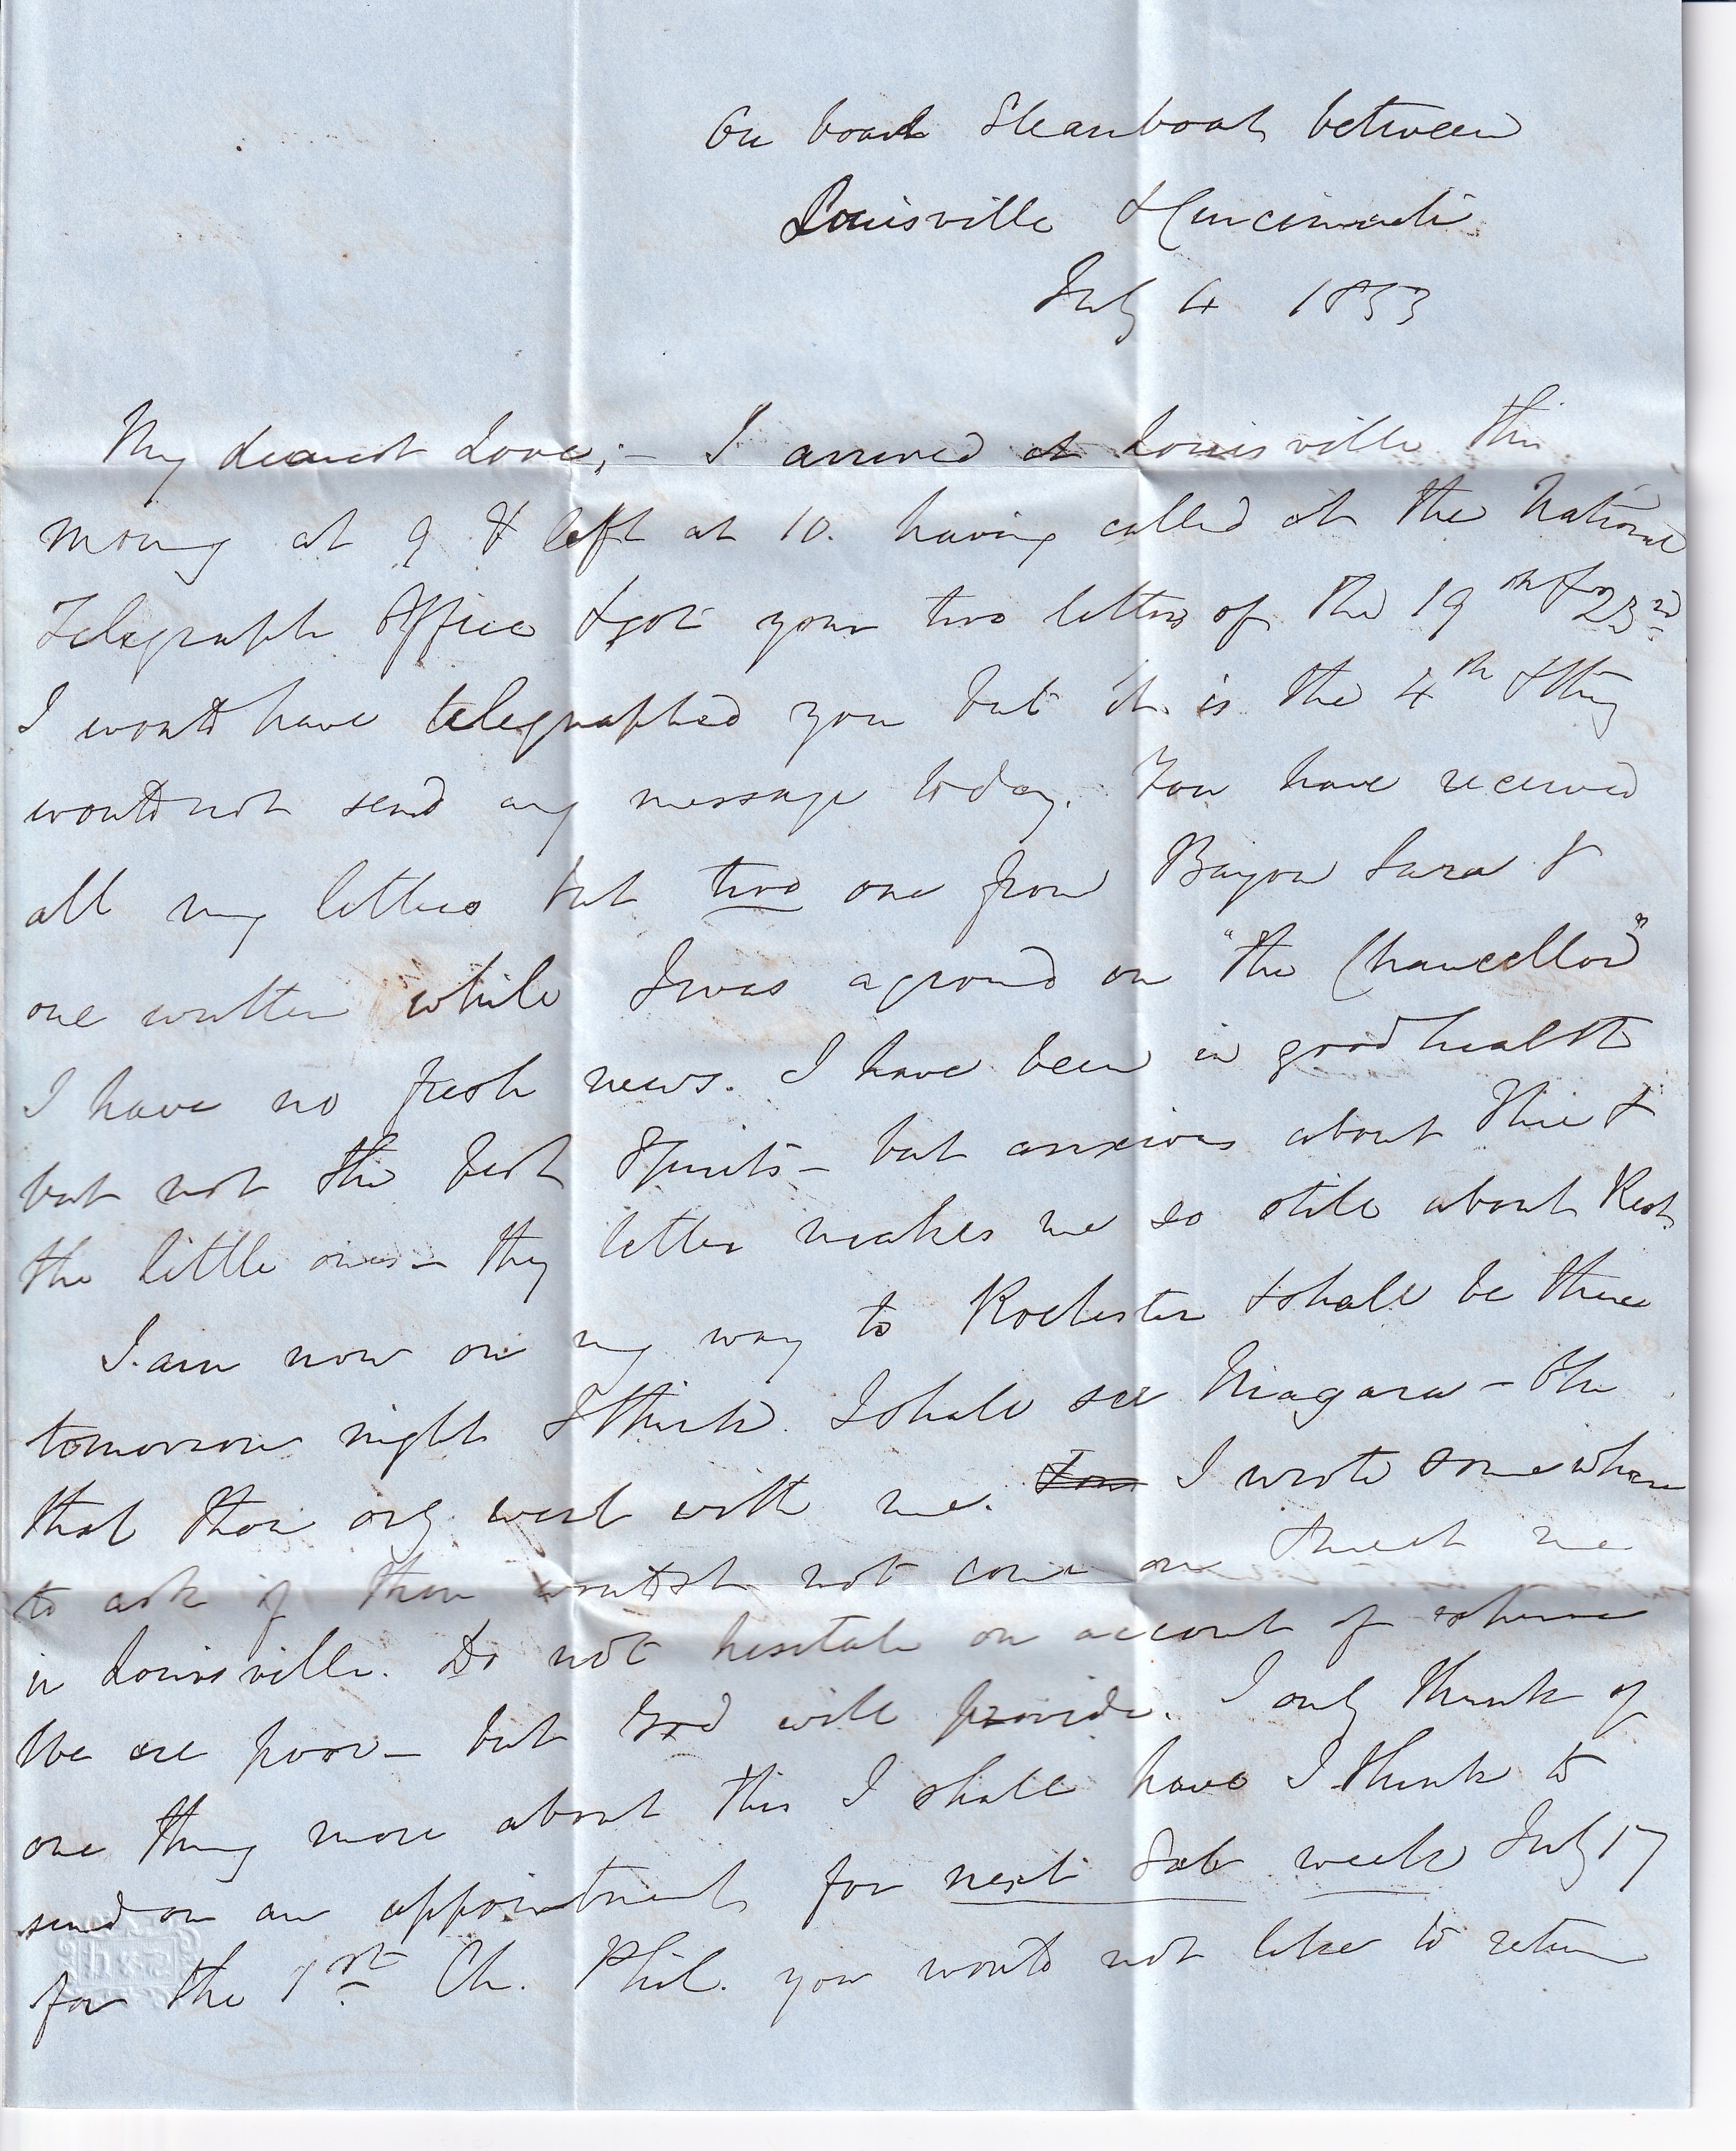 On board Steamboat between
Louisville & Cincinnati
July 4 1853
My dearest Love;— I arrived at Louisville this
morng at 9 & left at 10. having called at the National
Telegraph Office & got your two letters of the 19th & 23rd
I would have telegraphed you but it is the 4th & they
would not send any message today. You have received
all my letters but two one from Bayou Sara &
one written while I was aground on "the Chancellor"
I have no fresh news. I have been in good health
but not the best Spirits — but anxious about thee &
the little ones — thy letter makes me so still about
I am now on my way to Rochester & shall be there
tomorrow night I think. I shall see Niagara — Oh
that thou only wert with me. I wrote somewhere
to ask if thou wouldst not come on & meet me
in Louisville. Do not hesitate on account of
We are poor — but God will provide. I only think of
one thing more about this I shall have I think to
send on an appointment for next Sab week July 17
for the 1st Ch. Phil. you would not like to return